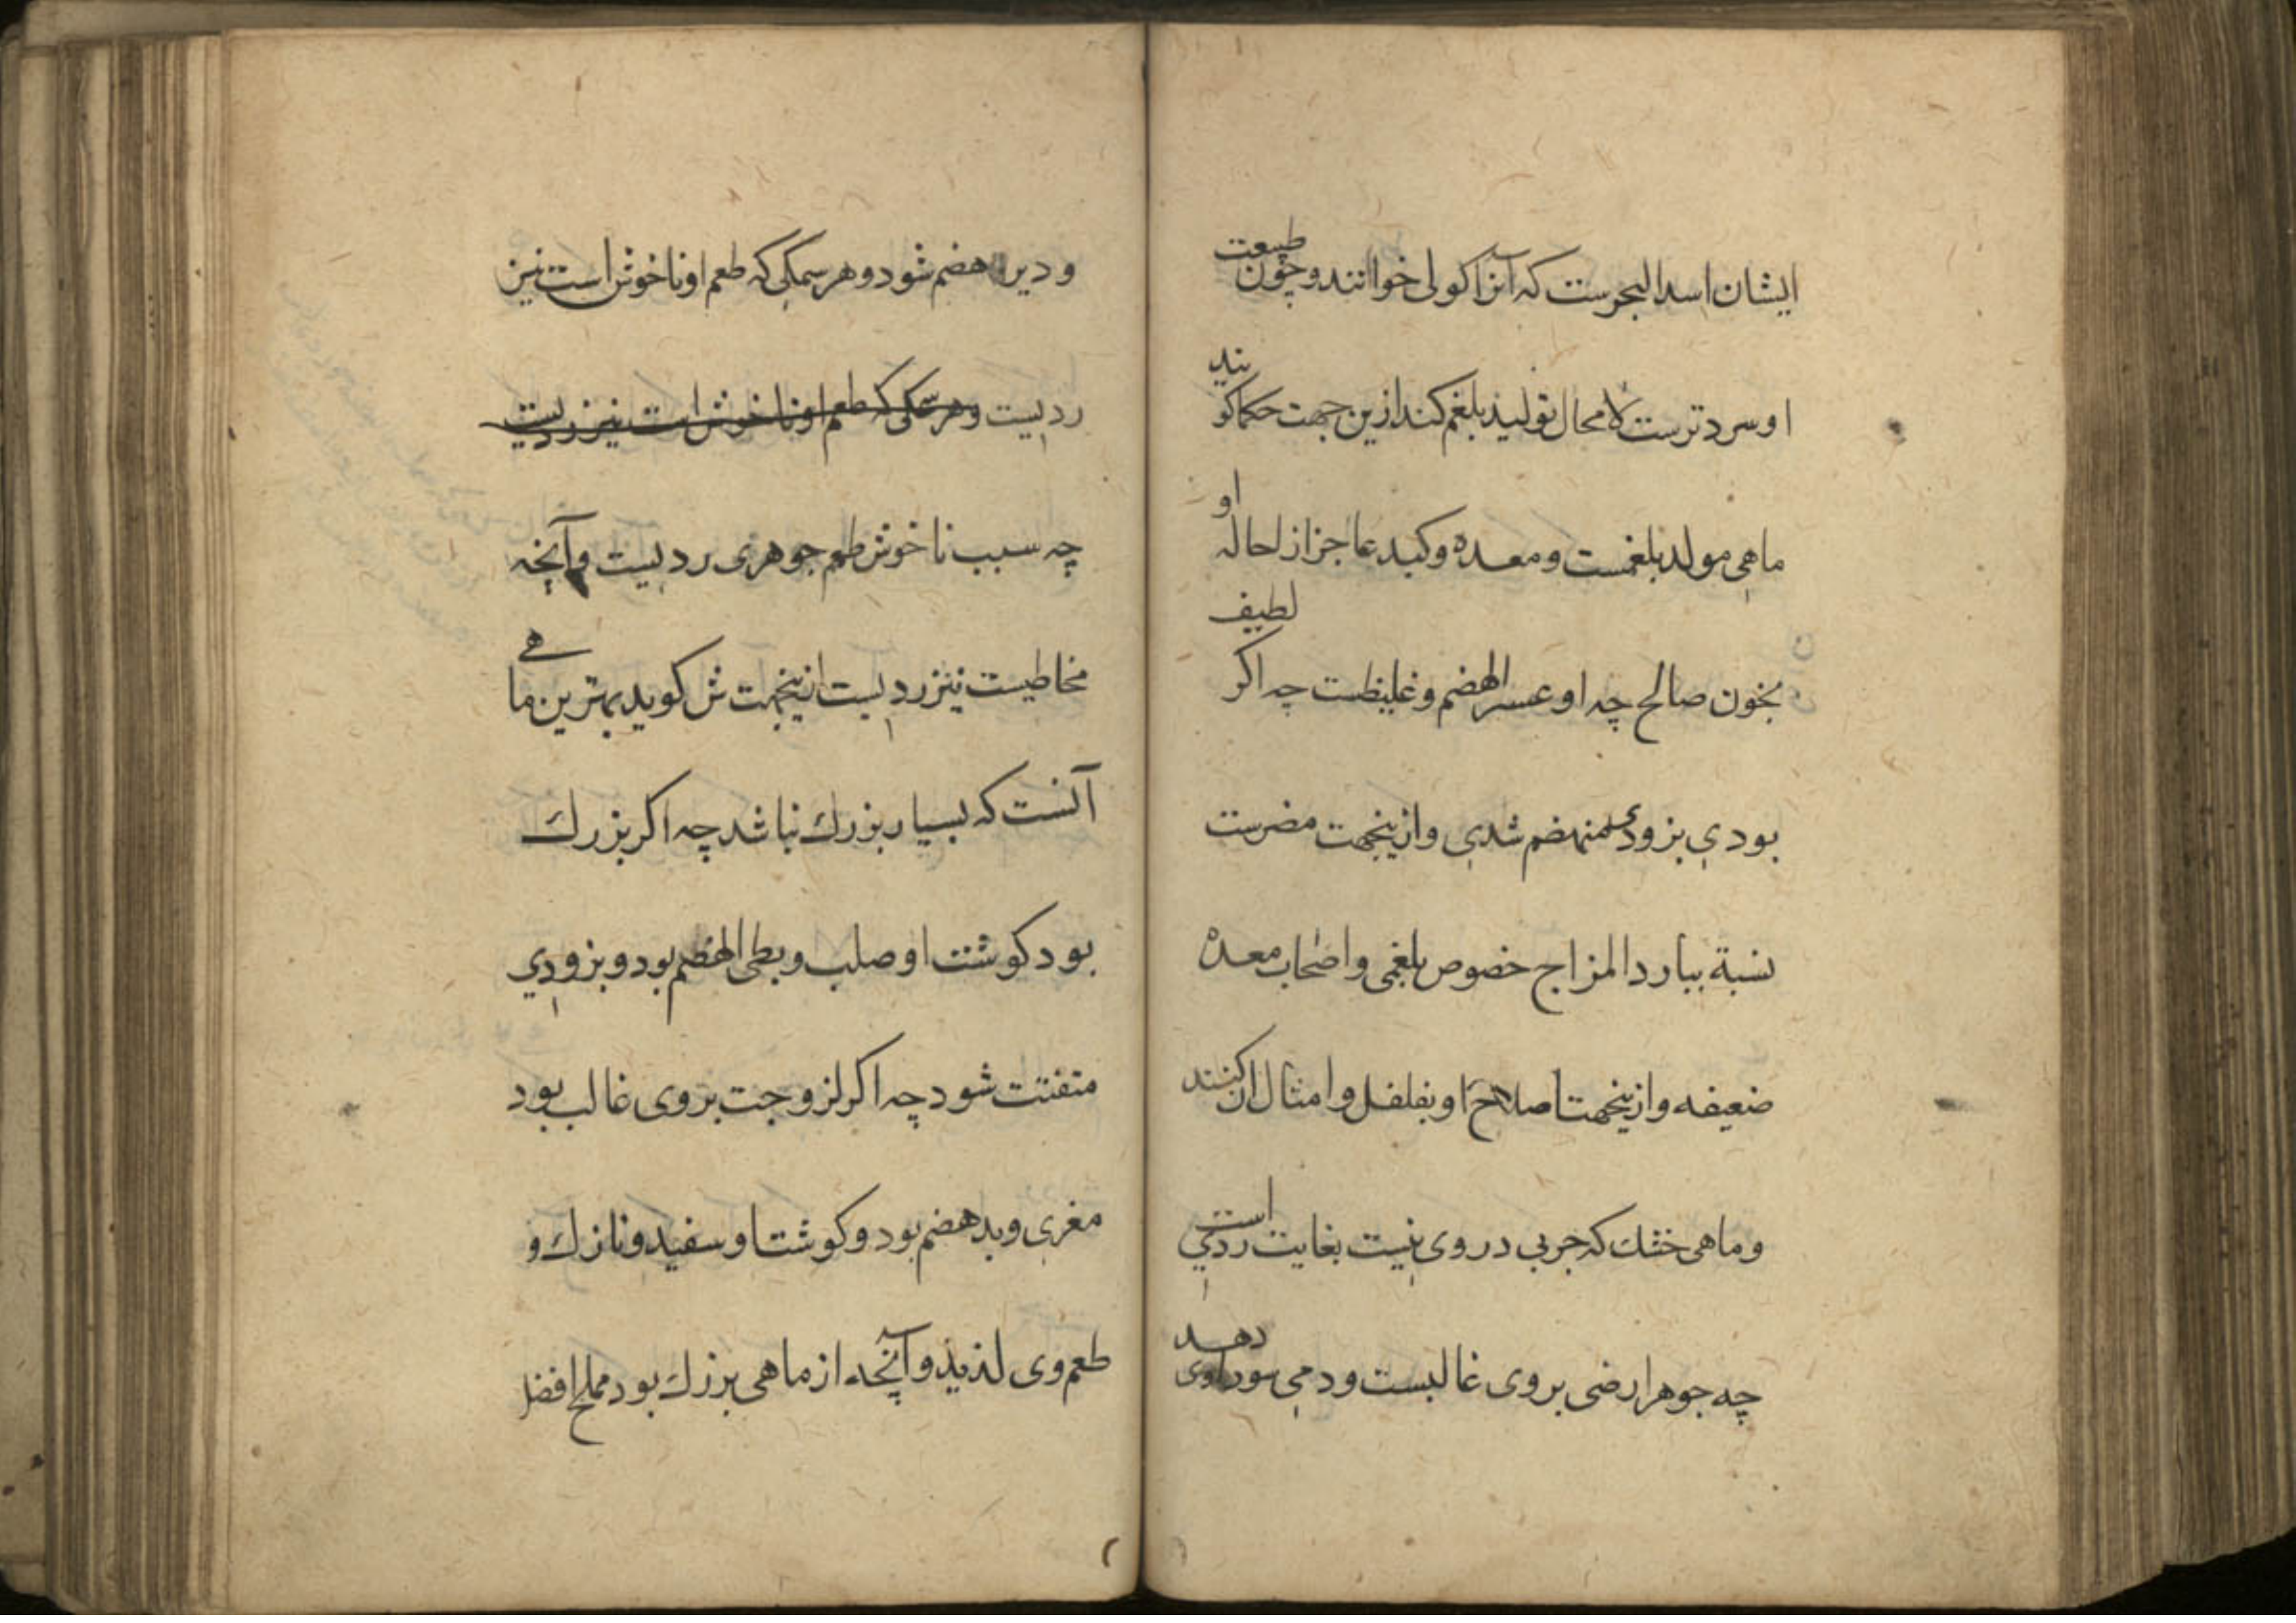 ایشان اسد البحرست که آنرا کولی خوانند و چون طبیعت
او سردترست لا محال تولید بلغم کند ازین جهت حکما کویند
ماهی مولد بلغمست و معده و کبد عاجز از احاله او
بخون صالح چه او عسر الهضم و غلیظست چه اکر لطیف
بودی بزودی منهضم شدی و ازینجهت مضرست
نسبة ببارد المزاج خصوص بلغمی و اصحاب معده
ضعیفه و ازینجهت اصلاح او بفلفل و امثال ان کنند
و ماهی خشك که جربی در وی نیست بغایت ردیی است
چه جوهر ارضی بر وی غالبست و دمی سوداوی دهد
و دیر هضم شود و هر سمکی که طعم او ناخوش است نیز
ردییست وهر سمکی که طعم او ناخوش است نیز ردییست
چه سبب ناخوش طعم جوهری ردییست و آنچه
مخاطیست نیز ردییست ازینجهت ش کوید بهترین ماهی
آنست که بسیار بزرك نباشد چه اکر بزرك
بود کوشت او صلب و بطی الهضم بود و بزودی
متفتت شود چه اکر لزوجت بر وی غالب بود
مغری و بد هضم بود و کوشت او سفید و نازك و
طعم وی لذیذ و آنچه از ماهی بزرك بود مملح افضل